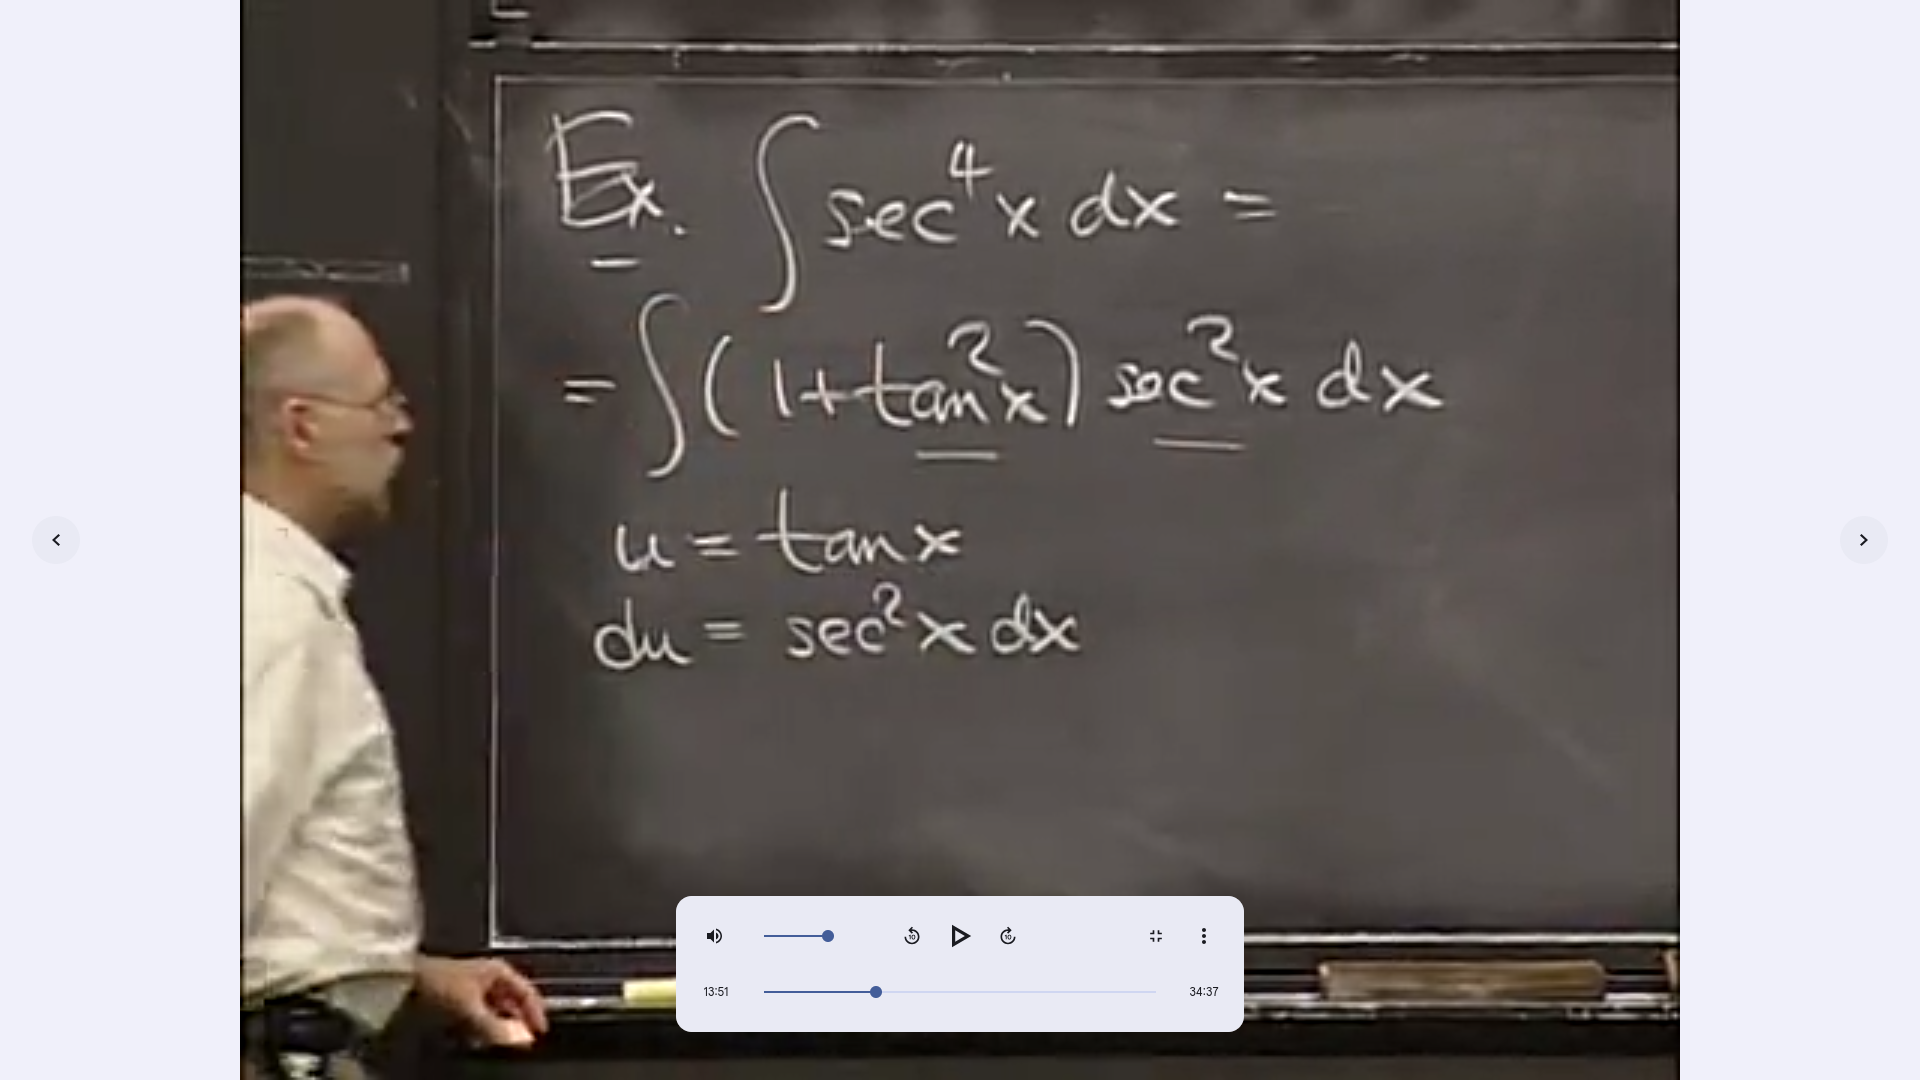 Ex. ∫ sec⁴ x dx =
= ∫ (1 + tan² x) sec² x dx
u = tan x
du = sec² x dx
10 10
13:51 34:37